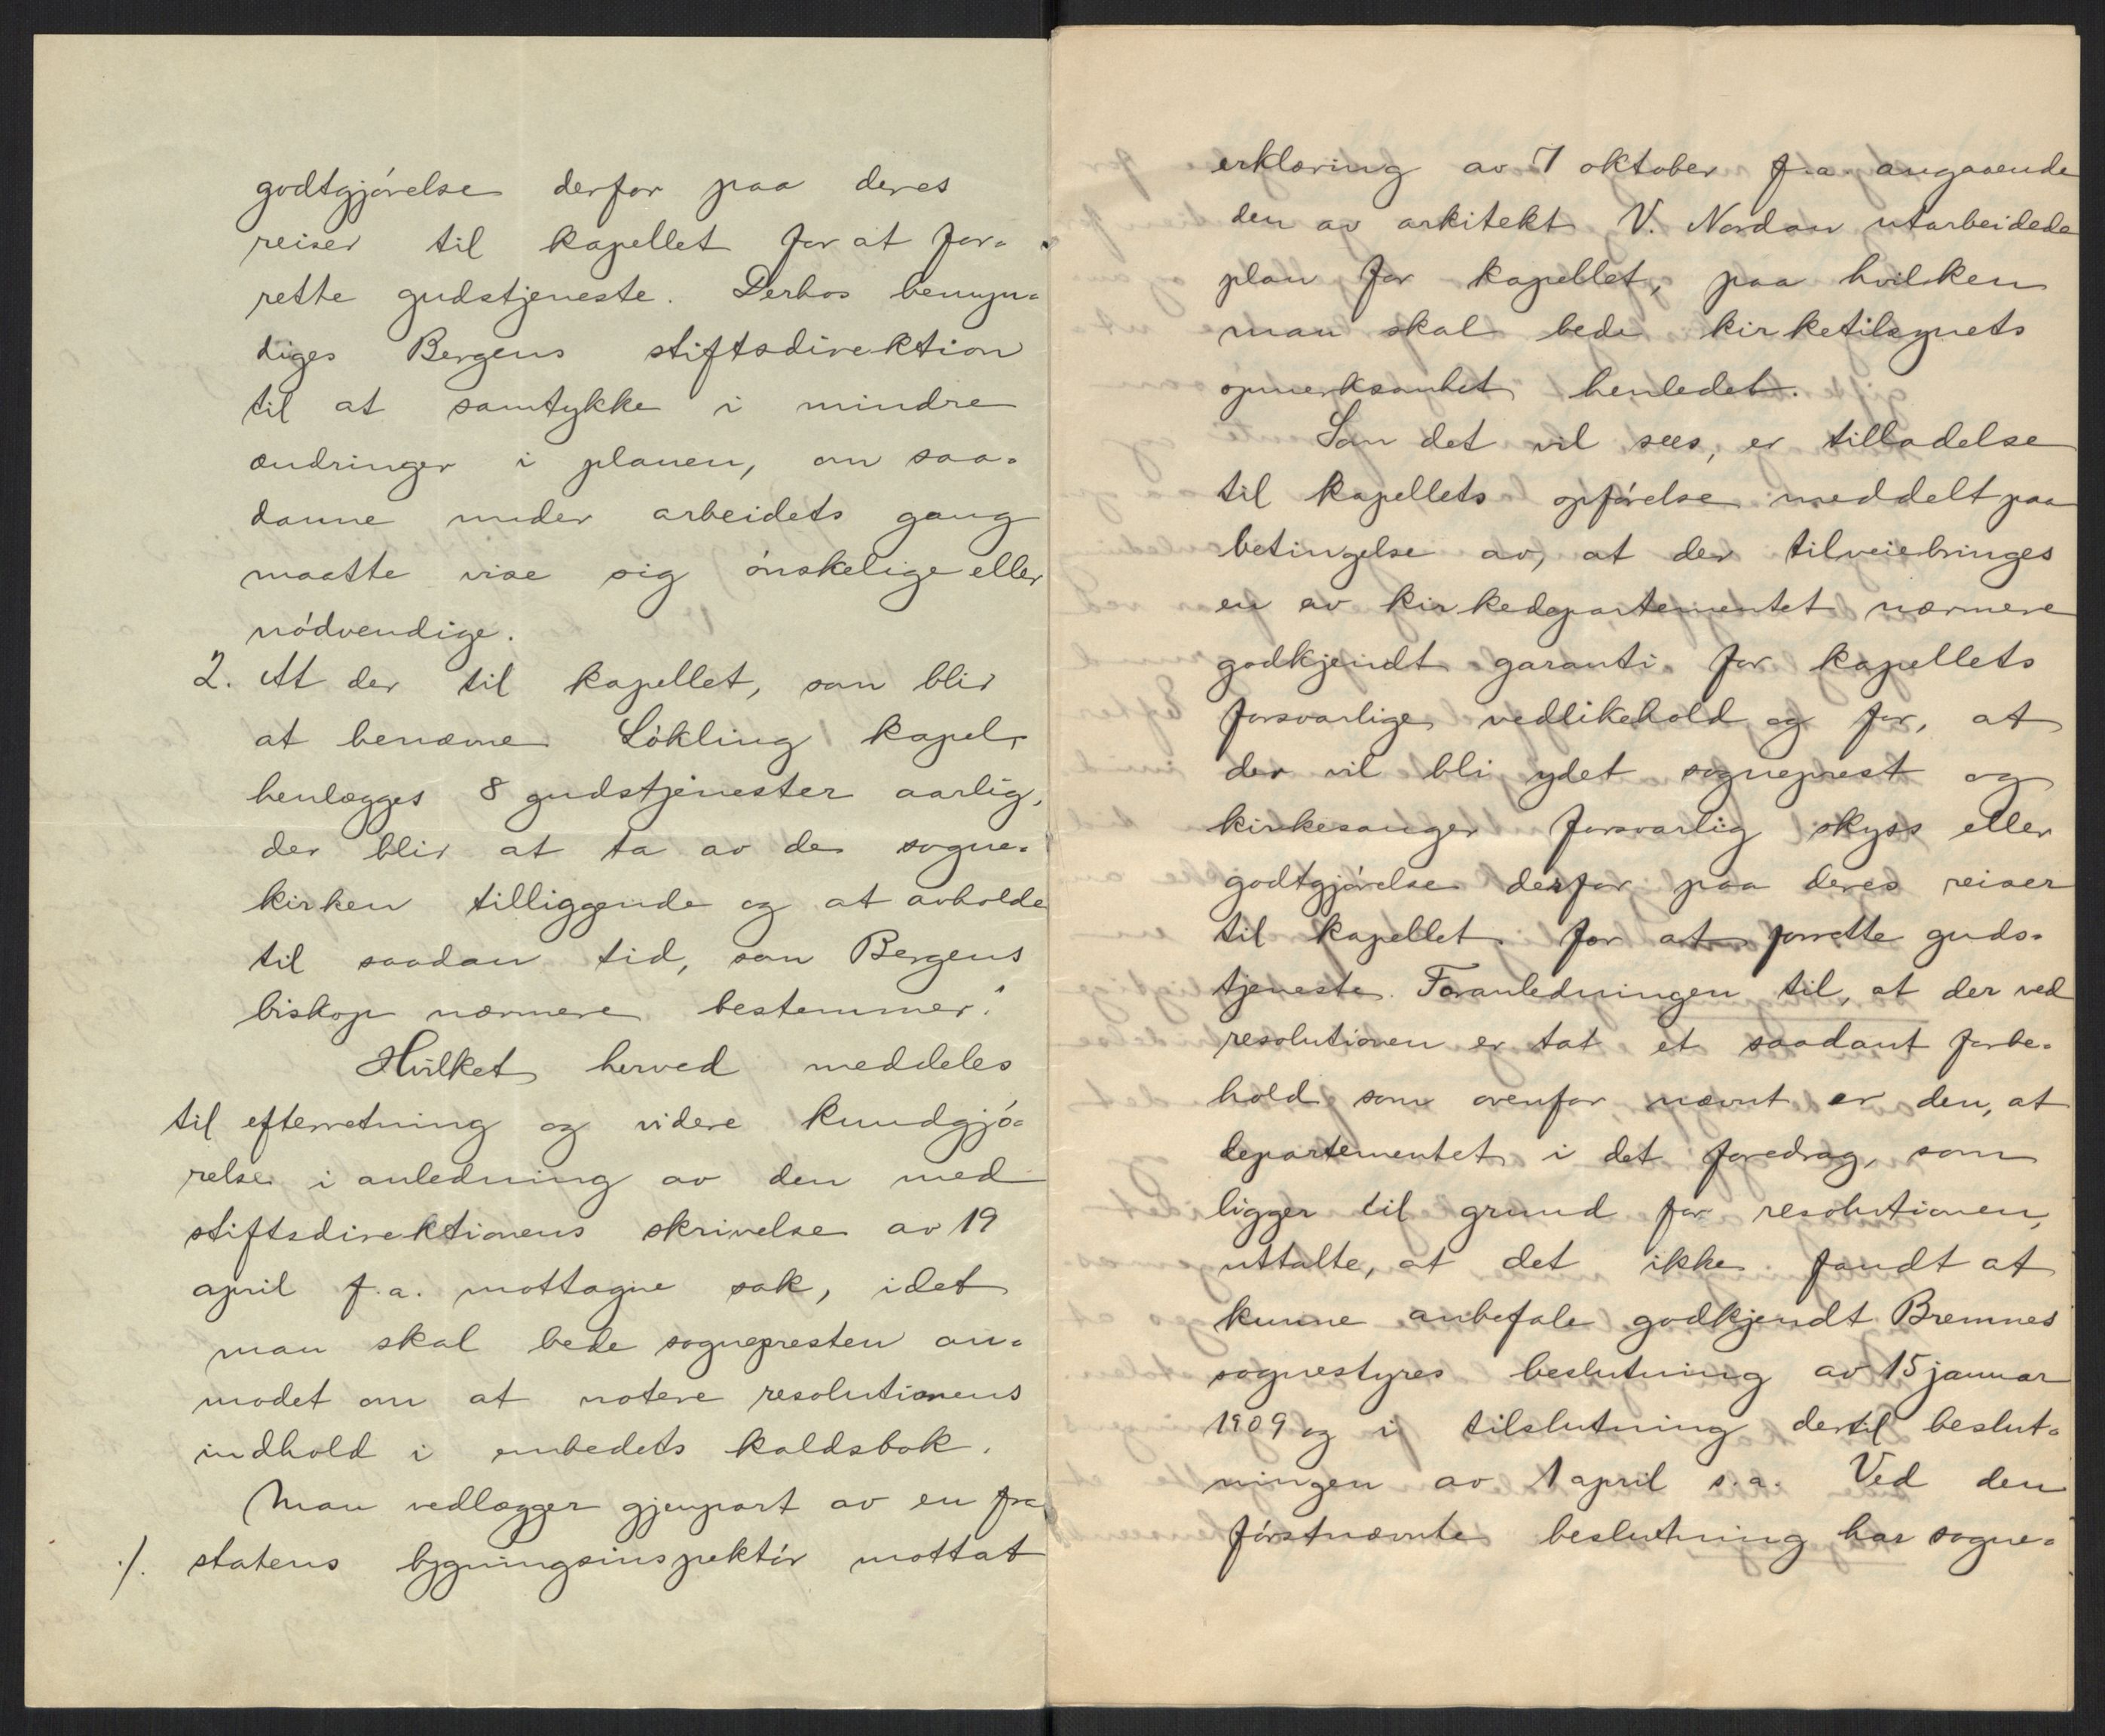 godtgjörelse derfor paa deres
reiser til kapellet for at for-
rette gudstjeneste. Derhos bemyn-
diges Bergens stiftsdirektion
til at samtykke i mindre
ændringer i planen, om saa-
danne under arbeidets gang
maatte vise sig önskelige eller
nödvendige.
2. At der til kapellet, som blir
at benævne Lökling kapel,
henlægges 8 gudstjenester aarlig,
der blir at ta av de sogne-
kirken tilliggende og at avholde
til saadan tid, som Bergens
biskop nærmere bestemmer."
Hvilket herved meddeles
til efterretning og videre kundgjö-
relse i anledning av den med
stiftsdirektionens skrivelse av 19
april f.a. mottagne sak, idet
man skal bede sognepresten an-
modet om at notere resolutionens
indhold i embedets kaldsbok.
Man vedlægger gjenpart av en fra
./. statens bygningsinspektör mottat
erklæring av 7 oktober f.a. angaaende
den av arkitekt V. Nordan utarbeidede
plan for kapellet, paa hvilken
man skal bede kirketilsynets
opmerksomhet henledet.
Som det vil sees, er tilladelse
til kapellets opförelse meddelt paa
betingelse av, at der tilveiebringes
en av kirkedepartementet nærmere
godkjendt garanti for kapellets
forsvarlige vedlikehold og for, at
der vil bli ydet sogneprest og
kirkesanger forsvarlig skyss eller
godtgjörelse derfor paa deres reiser
til kapellet for at forrette guds-
tjeneste. Foranledningen til, at der ved
resolutionen er tat et saadant forbe-
hold som ovenfor nævnt er den, at
departementet i det foredrag, som
ligger til grund for resolutionen,
uttalte, at det ikke fandt at
kunne anbefale godkjendt Bremnes
sognestyres beslutning av 15 januar
1909 og i tilslutning dertil beslut-
ningen av 1 april s.a. Ved den
förstnævnte beslutning har sogne-